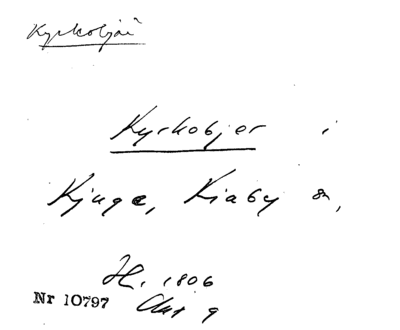 Kyrkobjär
Kyrkobjer i
Kjuge, Kiaby sn,
H. 1806
Nr 10797 Akt 9